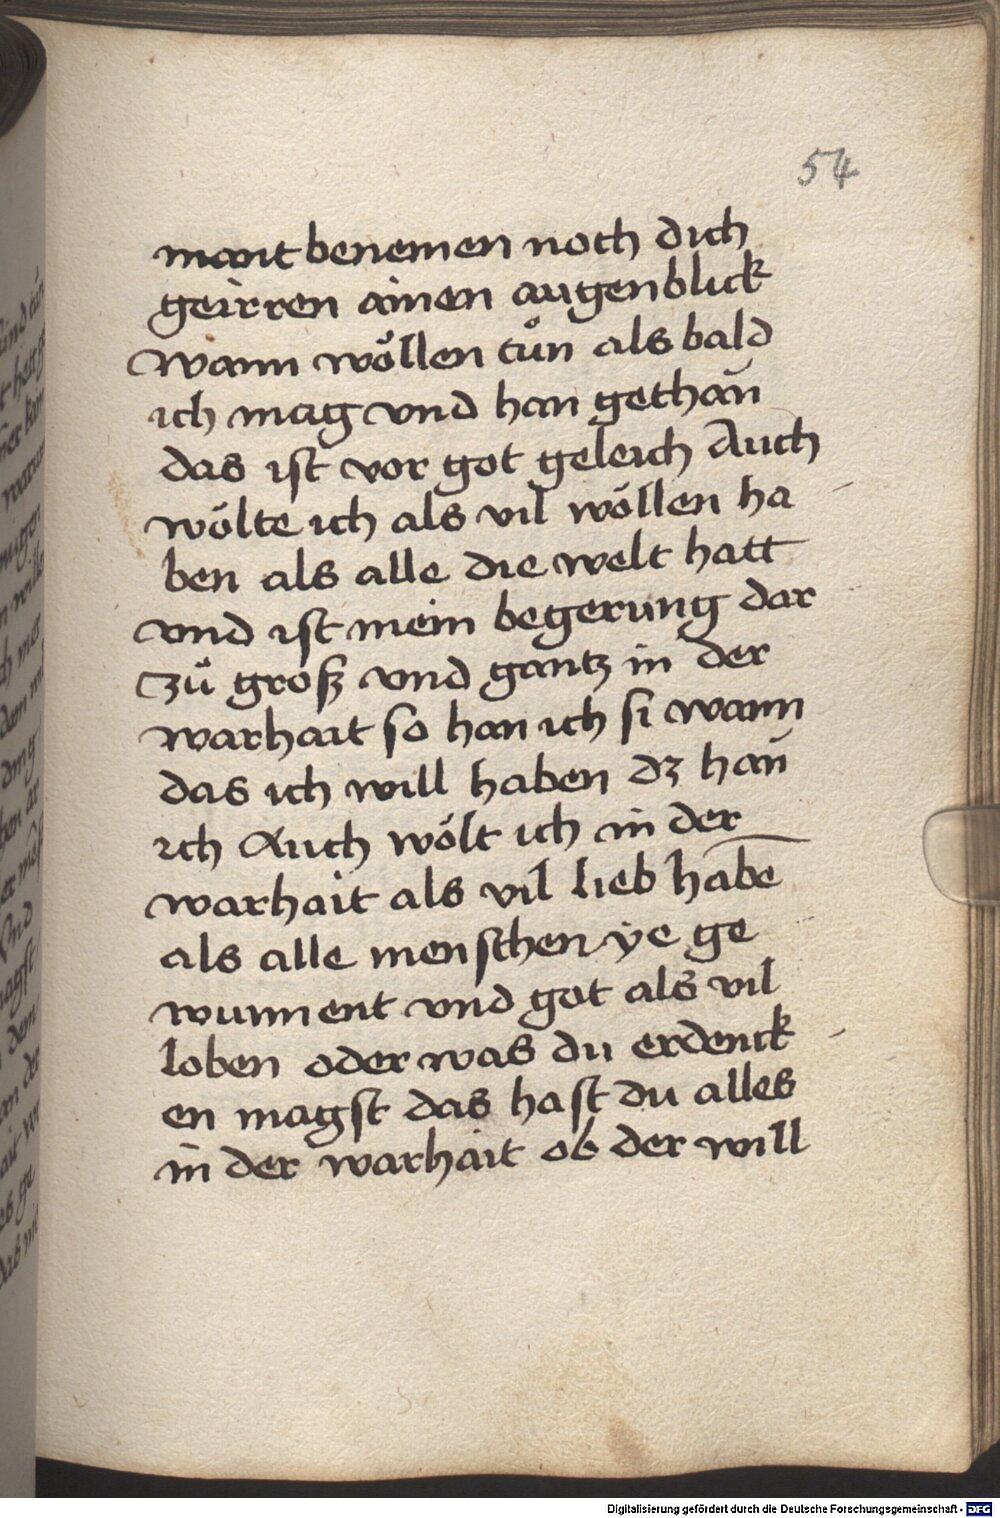 54
mant benemen noch dich
geirren ainen augenblick
wann wöllen tůn als bald
ich mag vnd han gethan̄
das ist vor got geleich Auch
wölte ich als vil wöllen ha
ben als alle die welt hatt
vnd ist mein begerung dar
zů groß vnd gantz in der
warhait so han ich si wann
das ich will haben dz han̄
ich Auch wölt ich in der
warhait als vil lieb habē
als alle menschen ye ge
wunnent vnd got als vil
loben oder was du erdenck
en magst das hast du alles
in der warhait ob der will
Digitalisierung gefördert durch die Deutsche Forschungsgemeinschaft - DFG